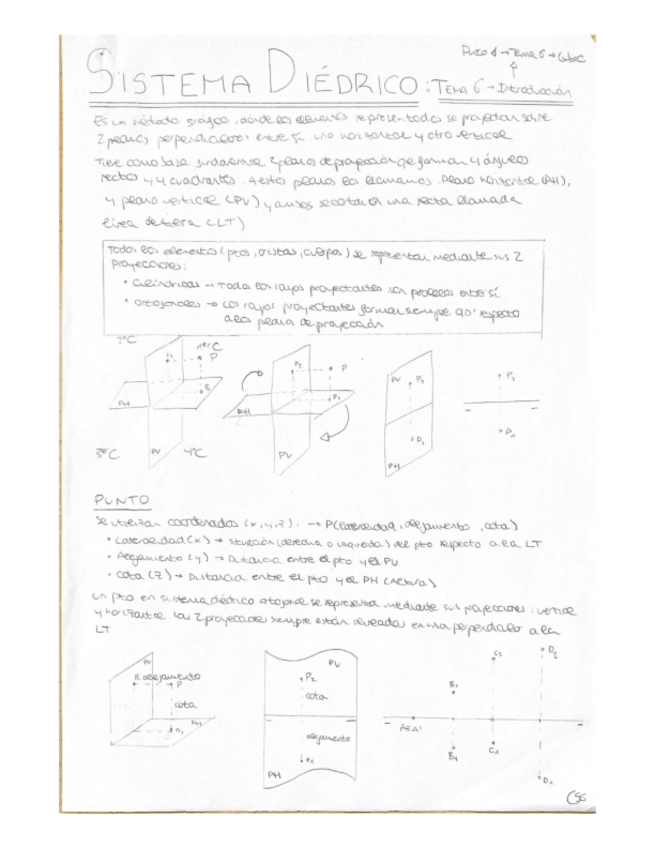 SISTEMA DIÉDRICO: TEMA 6 → Introducción
Es un método gráfico, donde los elementos representados se proyectan sobre
2 planos perpendiculares entre sí, uno horizontal y otro vertical
Tiene como base fundamental 2 planos de proyección que forman 4 ángulos
rectos y 4 cuadrantes. A estos planos los llamamos: Plano horizontal (PH),
y plano vertical (PV) y ambos se cortan en una recta llamada
línea de tierra (LT)
Todos los elementos (ptos, aristas, cuerpos) se representan mediante sus 2
proyecciones:
• Cilíndricas → Todos los rayos proyectantes son paralelos entre sí
• Ortogonales → Los rayos proyectantes forman siempre 90° respecto
a los planos de proyección
2°C
1erC
P2
P
P1
PH
3erC
PV
4°C
P2
P
P1
PH
PV
PV
P2
P1
PH
P2
P1
PUNTO
Se utilizan coordenadas (x,y,z): → P(lateralidad, alejamiento, cota)
• Lateralidad (x) → situación (derecha o izquierda) del pto respecto a la LT
• Alejamiento (y) → Distancia entre el pto y el PV
• Cota (z) → Distancia entre el pto y el PH (altura)
Un pto en sistema diédrico ortogonal se representa mediante sus proyecciones: vertical
y horizontal. Las 2 proyecciones siempre están alineadas en una perpendicular a la
LT
PV
P2 alejamiento
P
cota
P1
PH
PV
P2
cota
alejamiento
P1
PH
B2
C2
D2
B1
C1
D1